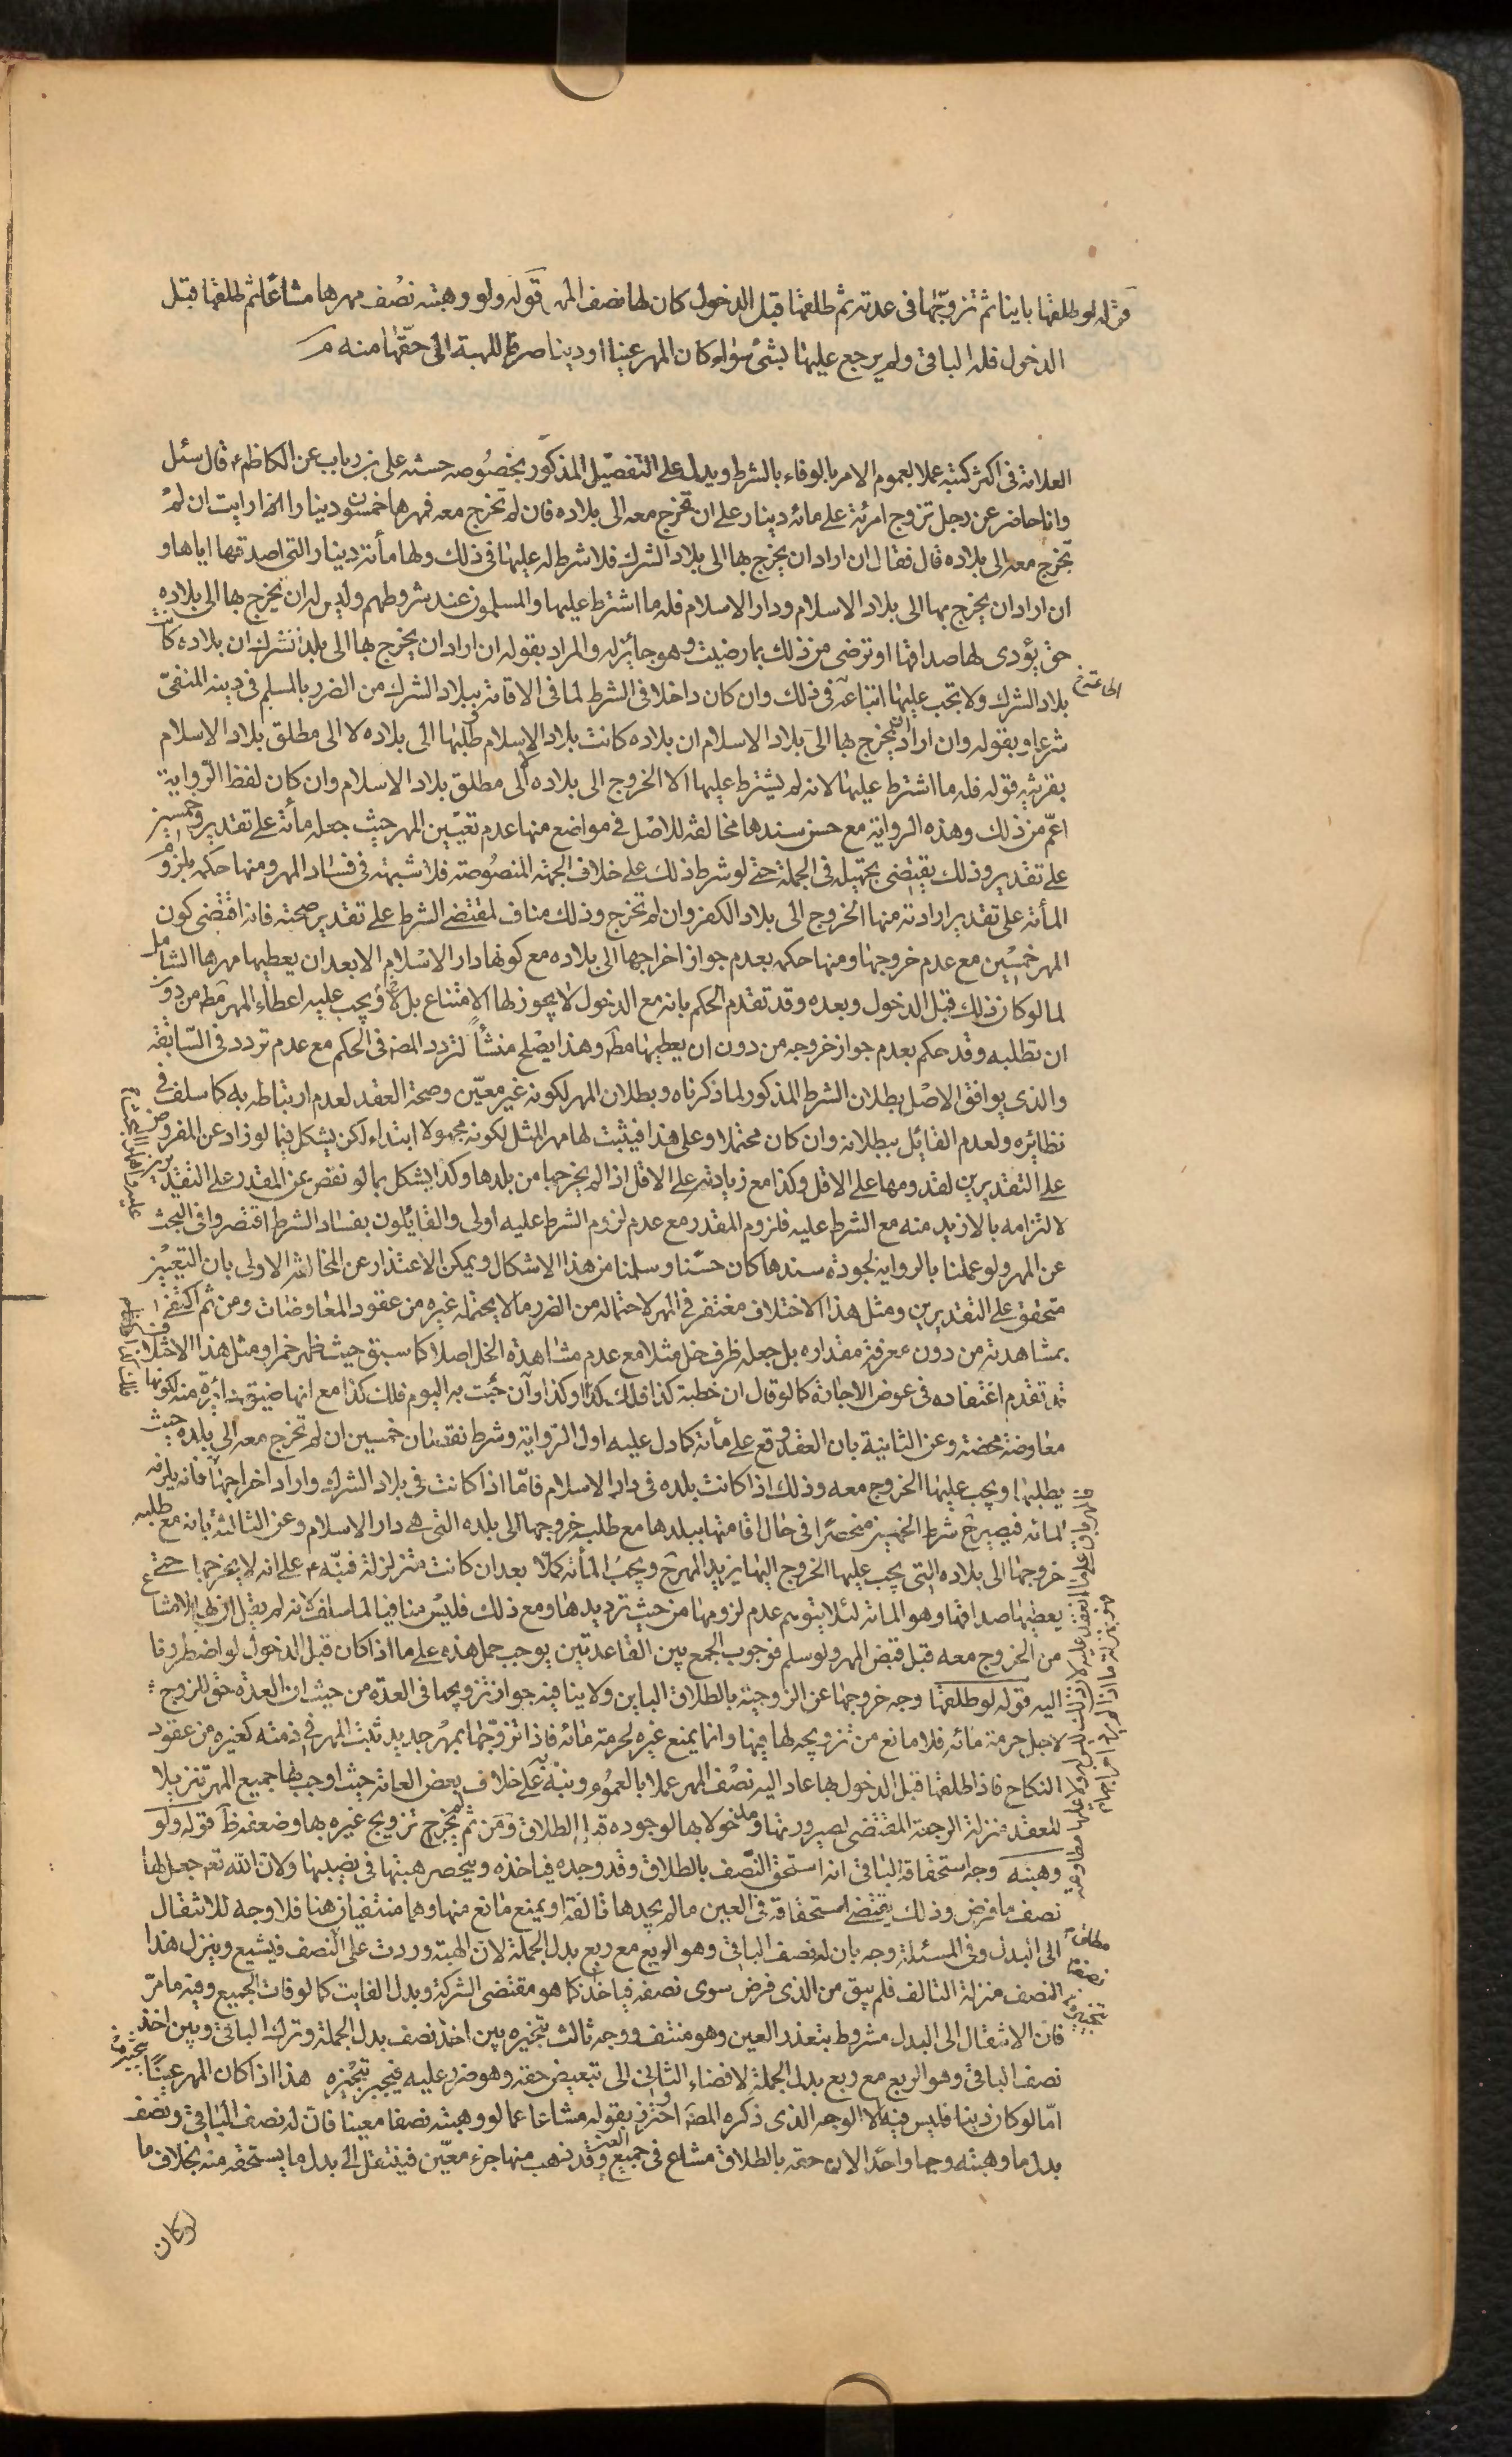 قوله لو طلقها باينا ثم تزوجها فى عدته ثم طلقها قبل الدخول كان لها نصف المهر قوله ولو وهبته نصف مهرها مشاعا ثم طلقها قبل
الدخول فله الباقى ولم يرجع عليها بشئ سواء كان المهر عينا او دينا صرفا للهبة الى حقها منه م
العلامة فى اكثر كتبه عملا بعموم الامر بالوفاء بالشرط ويدل على التفصيل المذكور بخصوصه حسنه على بن رياب عن الكاظم ع قال سئل
وانا حاضر عن رجل تزوج امرئة على مائه دينار على ان تخرج معه الى بلاده فان لم تخرج معه فمهرها خمسون دينارا ارايت ان لم
تخرج معه الى بلاده قال فقال ان اراد ان يخرج بها الى بلاد الشرك فلا شرط له عليها فى ذلك ولها مأته دينار التى اصدقها اياها و
ان اراد ان يخرج بها الى بلاد الاسلام ودار الاسلام فله ما اشترط عليها والمسلمون عند شروطهم وليس له ان يخرج بها الى بلاده
حتى يؤدى لها صداقها او ترضى من ذلك بما رضيت وهو جائز له والمراد بقوله ان اراد ان يخرج بها الى بلد الشرك ان بلاده كانت
بلاد الشرك ولا تجب عليها اتباعه فى ذلك وان كان داخلا فى الشرط لما فى الاقامة ببلاد الشرك من الضرر بالمسلم فى دينه المنفى
شرعا وبقوله وان اراد ان يخرج بها الى بلاد الاسلام ان بلاده كانت بلاد الاسلام وطلبها الى بلاده لا الى مطلق بلاد الاسلام
بقرينة قوله فله ما اشترط عليها لانه لم يشترط عليها الا الخروج الى بلاده لا الى مطلق بلاد الاسلام وان كان لفظ الرواية
اعم من ذلك وهذه الرواية مع حسن سندها مخالفه للاصل فى مواضع منها عدم تعيين المهر حيث جعله مأته على تقدير وخمسين
على تقدير وذلك يقتضى تجهيله فى الجملة حتى لو شرط ذلك على خلاف الجهة المنصوصة فلا شبهة فى فساد المهر ومنها حكمه بلزوم
المأته على تقدير ارادته منها الخروج الى بلاد الكفر وان لم تخرج وذلك مناف لمقتضى الشرط على تقدير صحته فانه اقتضى كون
المهر خمسين مع عدم خروجها ومنها حكمه بعدم جواز اخراجها الى بلاده مع كونها دار الاسلام الا بعد ان يعطيها مهرها الشامل
لما لو كان ذلك قبل الدخول وبعده وقد تقدم الحكم بانه مع الدخول لا يجوز لها الامتناع بل لا يجب عليه اعطاء المهر مط من دون
ان تطلبه وقد حكم بعدم جواز خروجه من دون ان يعطيها مط وهذا يصلح منشأ لتردد المص فى الحكم مع عدم تردد فى السابقه
والذى يوافق الاصل بطلان الشرط المذكور لما ذكرناه وبطلان المهر لكونه غير معين وصحة العقد لعدم ارتباطه به كما سلف فى
نظائره ولعدم القائل ببطلانه وان كان محتملا وعلى هذا فيثبت لها مهر المثل لكونه مجهولا ابتداء لكن يشكل فيما لو زاد عن المفروض
على التقديرين لقدومها على الاقل وكذا مع زيادته على الاقل اذا لم يخرجها من بلدها وكذا يشكل بما لو نقص عن المقدر على التقديرين
لالتزامه بالازيد منه مع الشرط عليه فلزوم المقدر مع عدم لزوم الشرط عليه اولى والقائلون بفساد الشرط اقتصروا فى البحث
عن المهر ولو عملنا بالرواية لجودة سندها كان حسنا وسلمنا من هذا الاشكال ويمكن الاعتذار عن المخالفة الاولى بان التعيين
متحقق على التقديرين ومثل هذا الاختلاف مغتفر فى المهر لاحتماله من الغرر ما لا يحتمله غيره من عقود المعاوضات ومن ثم اكتفى
بمشاهدته من دون معرفة مقداره بل جعله ظرف خل مثلا مع عدم مشاهدة الخل اصلا كما سبق حيث ظهر خمرا ومثل هذا الاختلاف
قد تقدم اغتفاده فى عوض الاجارة كما لو قال ان خطبة كذا فلك كذا او كذا وان جئت به اليوم فلك كذا مع انها ضيق دائرة منه لكونها
معاوضة محضة وعن الثانية بان العقد وقع على مأته كما دل عليه اول الرواية وشرط نقصان خمسين ان لم تخرج معه الى بلده حيث
يطلبها ويجب عليها الخروج معه وذلك اذا كانت بلده فى دار الاسلام فاما اذا كانت فى بلاد الشرك واراد اخراجها فانه يلزمه
المائه فيصير شرط الخمسين منحصرا فى حال اقامتها ببلدها مع طلبه خروجها الى بلده التى هى دار الاسلام وعن الثالثة بانه مع طلبه
خروجها الى بلاده التى يجب عليها الخروج اليها يزيد المهر ويجب المأته كملا بعد ان كانت متزلزلة فنبه ع على انه لا يخرجها حتى
يعطيها صداقها وهو المائه لئلا يتوهم عدم لزومها من حيث ترديدها ومع ذلك فليس منافيا لما سلف لانه لم يقل ان لها الامتناع
من الخروج معه قبل قبض المهر ولو سلم فوجوب الجمع بين القاعدتين يوجب حمل هذه على ما اذا كان قبل الدخول لو اضطررنا
اليه قوله لو طلقها وجه خروجها عن الزوجية بالطلاق الباين ولا ينافيه جواز تزويجها فى العدة من حيث ان العدة حق للزوج
لاجل حرمة مائه فلا مانع من تزويجه لها فيها وانما يمنع غيره لحرمة مائه فاذا تزوجها بمهر جديد ثبت المهر فى ذمته كغيره من عقود
النكاح فاذا طلقها قبل الدخول بها عاد اليه نصف المهر عملا بالعموم ونبه على خلاف بعض العامة حيث اوجب لها جميع المهر تنزيلا
للعقد منزلة الرجعة المقتضى لصيرورتها مدخولا بها لوجوده قبل الطلاق ومن ثم لم يخرج تزويج غيره بها وضعفه ظ قوله ولو
وهبته وجه استحقاقه الباقى انه استحق النصف بالطلاق وقد وجده فياخذه وينحصر هبتها فى نصيبها ولان الله تعم جعل لها
نصف ما فرض وذلك يقتضى استحقاقه فى العين ما لم يجدها تالفة او يمنع مانع منها وهما منتفيان هنا فلا وجه للانتقال
الى البدل وفى المسئلة وجه بان له نصف الباقى وهو الربع مع ربع بدل الجملة لان الهبة وردت على النصف فيشيع وينزل هذا
النصف منزلة التالف فلم يبق من الذى فرض سوى نصفه فياخذ كما هو مقتضى الشركة وبدل الفايت كما لو فات الجميع وفيه ما مر
فان الانتقال الى البدل مشروط بتعذر العين وهو منتف ووجه ثالث بتخيره بين اخذ نصف بدل الجملة وترك الباقى وبين اخذ
نصف الباقى وهو الربع مع ربع بدل الجملة لافضاء الثانى الى تبعيض حقه وهو ضرر عليه فيجبر بتخيره هذا اذا كان المهر عينا
اما لو كان دينا فليس فيه الا الوجه الذى ذكره المص واحترز بقوله مشاعا عما لو وهبته نصفا معينا فان له نصف الباقى ونصف
بدل ما وهبته وجها واحدا لان حقه بالطلاق مشاع فى جميع العين وقد ذهب منها جزء معين فينتقل الى بدل ما يستحقه منه بخلاف ما
لو كان